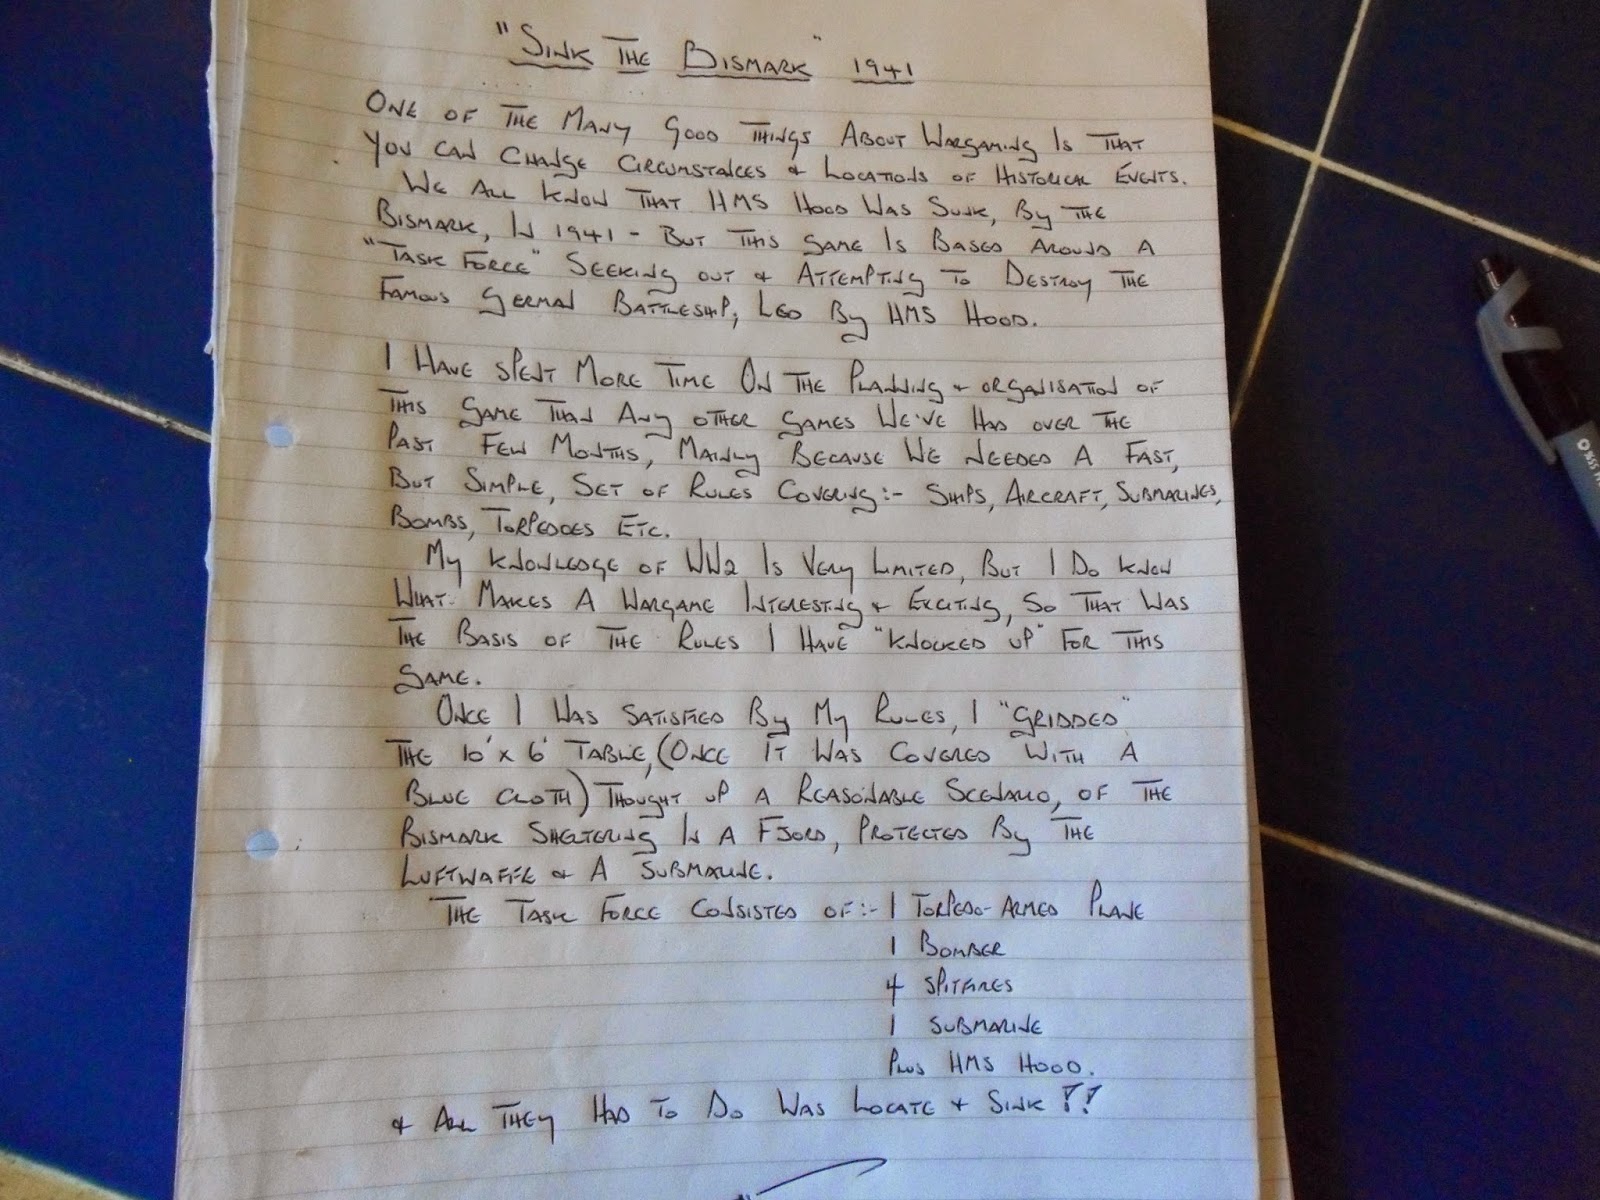 "Sink The Bismark" 1941
One of The Many Good Things About Wargaming Is That
You can Change Circumstances & Locations of Historical Events.
We All Know That HMS Hood Was Sunk, By The
Bismark, In 1941 - But This Game Is Based Around A
"Task Force" Seeking out & Attempting To Destroy The
Famous German Battleship, Led By HMS Hood.
I Have Spent More Time On The Planning & organisation of
This Game Than Any other Games We've Had over The
Past Few Months, Mainly Because We Needed A Fast,
But Simple, Set of Rules Covering:- Ships, Aircraft, Submarines,
Bombs, Torpedoes Etc.
My Knowledge of WW2 Is Very Limited, But I Do Know
What Makes A Wargame Interesting & Exciting, So That Was
The Basis of The Rules I Have "Knocked up" For This
Game.
Once I Was Satisfied By My Rules, I "Gridded"
The 10' x 6' Table, (Once It Was Covered With A
Blue Cloth) Thought up A Reasonable Scenario, of The
Bismark Sheltering In A Fjord, Protected By The
Luftwaffe & A Submarine.
The Task Force Consisted of:- 1 Torpedo-Armed Plane
1 Bomber
4 Spitfires
1 Submarine
Plus HMS Hood.
& All They Had To Do Was Locate & Sink !!